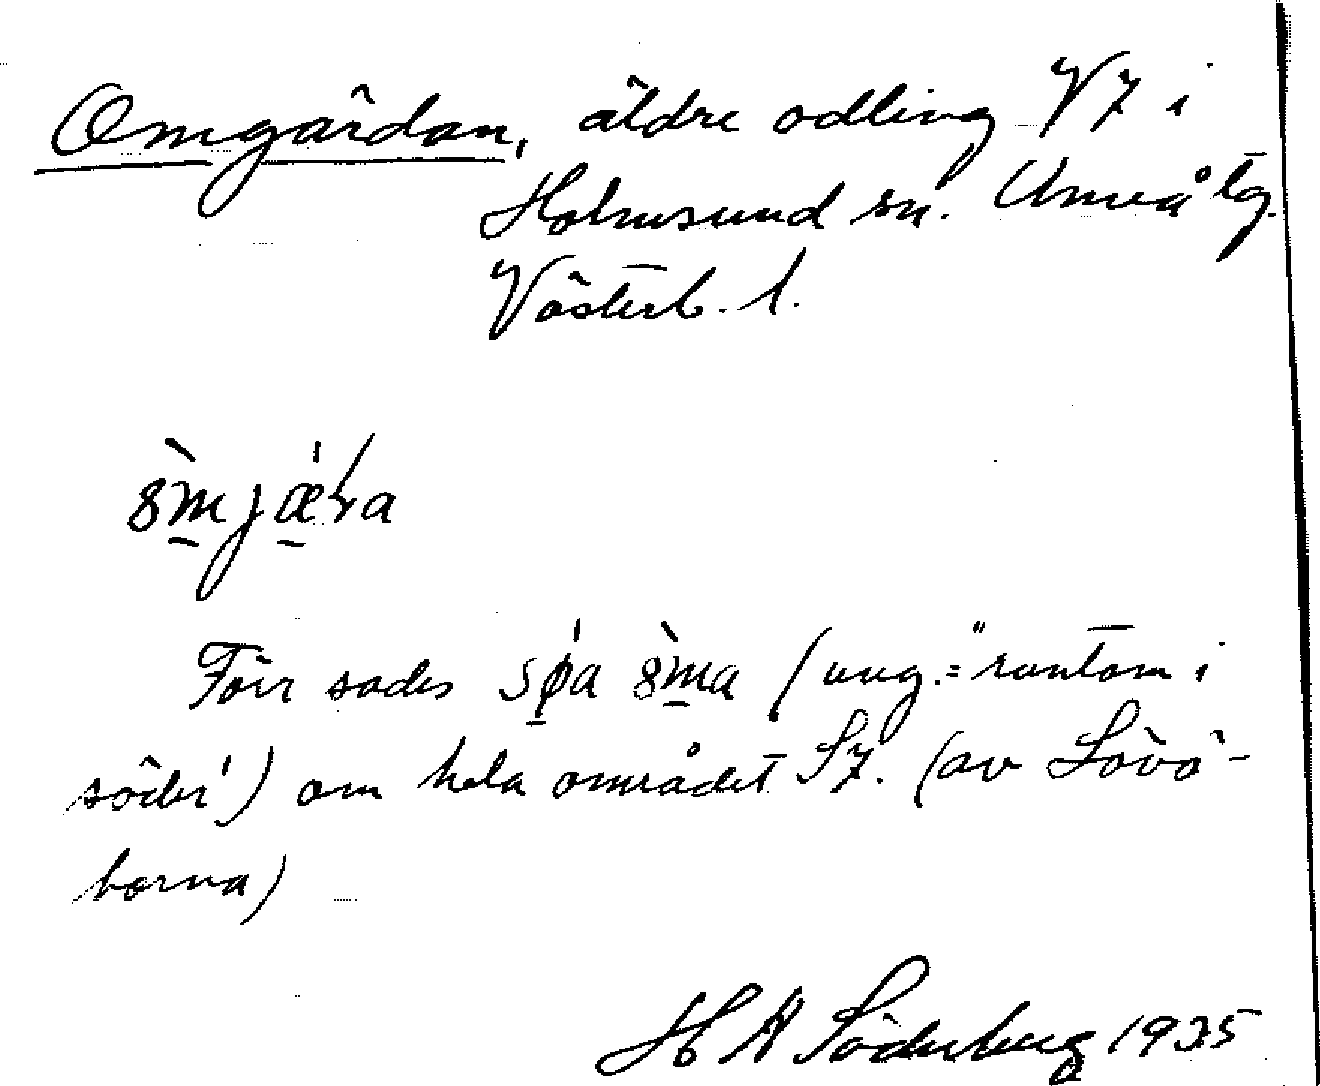 Omgärdan, äldre odling V7 i
Holmsund sn. Umeå tg.
Västerb. l.
Förr sades (ung. = "runtom i
söder") om hela området S7. (av Lövö-
borna)
H Å Söderberg 1935